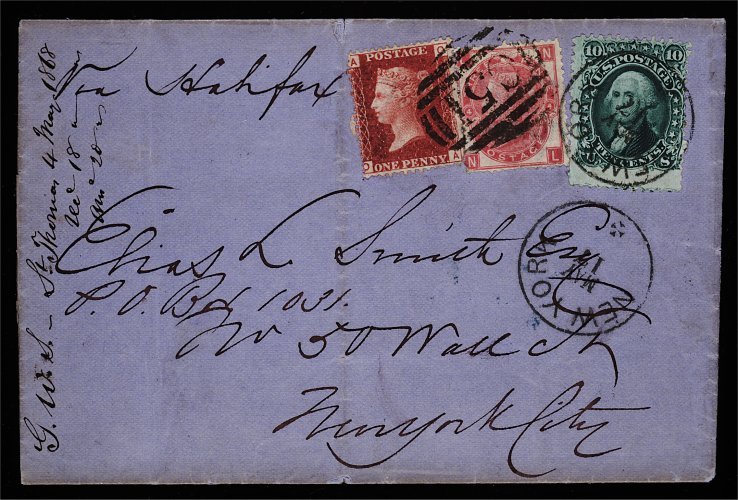 Via Halifax
Elias L. Smith Esq
P.O. Box 1031.
No 50 Wall St
New York City
St Thomas 4 May 1868
Rec 18
Ans 20
A POSTAGE O
O ONE PENNY A
C51
N
POSTAGE
N L
10 U.S. POSTAGE 10
TEN CENTS
U S
NEW
NEW YORK
MAY